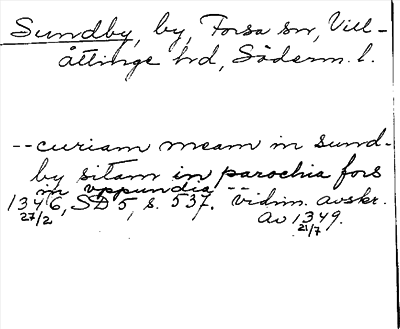 Sundby, by, Forsa sn, Vill-
åttinge hd, Söderm. l.
-- curiam meam in sund-
by sitam in parochia fors
in vppundia --
1346, SD 5, s. 537. vidim. avskr.
27/2 av 1349.
21/7